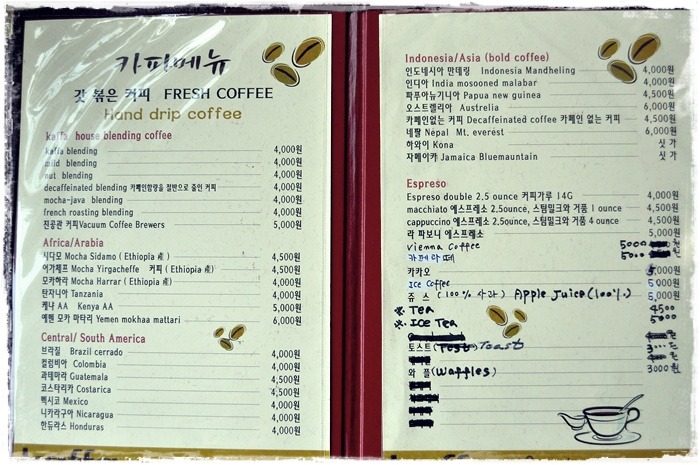 카피메뉴
갓 볶은 커피 FRESH COFFEE
Hand drip coffee
kaffa house blending coffee
kaffa blending 4,000원
mild blending 4,000원
nut blending 4,000원
decaffeinated blending 카페인함량을 절반으로 줄인 커피 4,000원
mocha-java blending 4,000원
french roasting blending 4,000원
진공관 커피Vacuum Coffee Brewers 5,000원
Africa/Arabia
시다모 Mocha Sidamo ( Ethiopia 産 ) 4,500원
아가체프 Mocha Yirgacheffe 커피 ( Ethiopia 産) 4,500원
모카하라 Mocha Harrar ( Ethiopia 産) 4,000원
탄자니아 Tanzania 4,000원
케냐 AA Kenya AA 5,000원
예멘 모카 마타리 Yemen mokhaa mattari 6,000원
Central/ South America
브라질 Brazil cerrado 4,000원
컬럼비아 Colombia 4,000원
과테마라 Guatemala 4,500원
코스타리카 Costarica 4,500원
멕시코 Mexico 4,000원
니카라구아 Nicaragua 4,000원
한듀라스 Honduras 4,000원
Indonesia/Asia (bold coffee)
인도네시아 만데링 Indonesia Mandheling 4,000원
인디아 India mosooned malabar 4,000원
파푸아뉴기니아 Papua new guinea 4,500원
오스트렐리아 Australia 6,000원
카페인없는 커피 Decaffeinated coffee 카페인 없는 커피 4,500원
네팔 Nepal Mt. everest 6,000원
하와이 Kona 싯 가
자메이카 Jamaica Bluemauntain 싯 가
Espreso
Espreso double 2.5 ounce 커피가루 14G 4,000원
macchiato 에스프레소 2.5ounce, 스팀밀크와 거품 1 ounce 4,500원
cappuccino 에스프레소 2.5ounce, 스팀밀크와 거품 4 ounce 4,500원
라 파보니 에스프레소 5,000원
Vienna Coffee 5000
카페라떼 5000
카카오 5,000원
ICE Coffee 5,000원
쥬 스 (100% 사과) Apple Juice (100%) 5,000원
※ Tea 4500
※ ICE Tea 5000
토스트 Toast
와 플 (Waffles) 3000원